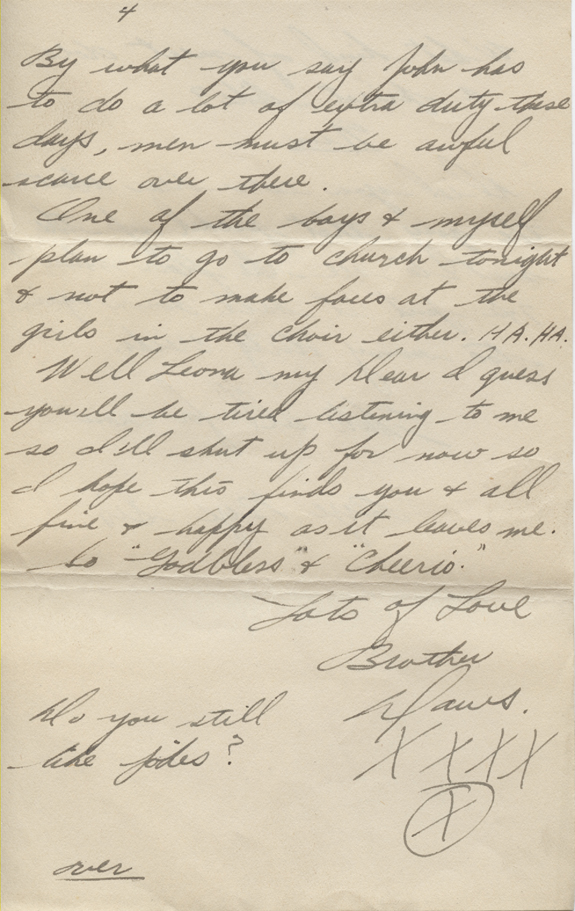 4
By what you say John has
to do a lot of extra duty these
days, men must be awful
scarce over there.
One of the boys & myself
plan to go to church tonight
& not to make faces at the
girls in the choir either. HA. HA.
Well Leona my Dear I guess
you'll be tired listening to me
so I'll shut up for now so
I hope this finds you & all
fine & happy as it leaves me.
So "Godbless" & "Cheerio."
Lots of Love
Brother
Daws.
Do you still
like jokes?
X X X X
X
over